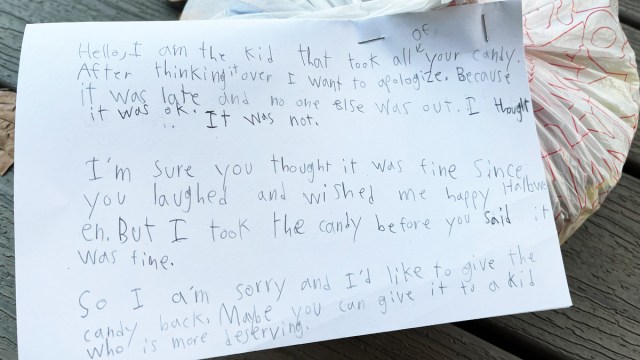 Hello, I am the kid that took all of your candy.
After thinking it over I want to apologize. Because
it was late and no one else was out. I thought
it was ok. It was not.
I'm sure you thought it was fine since
you laughed and wished me happy Hallowe
en. But I took the candy before you said it
was fine.
So I a'm sorry and I'd like to give the
candy back. Maybe you can give it to a kid
who is more deserving.